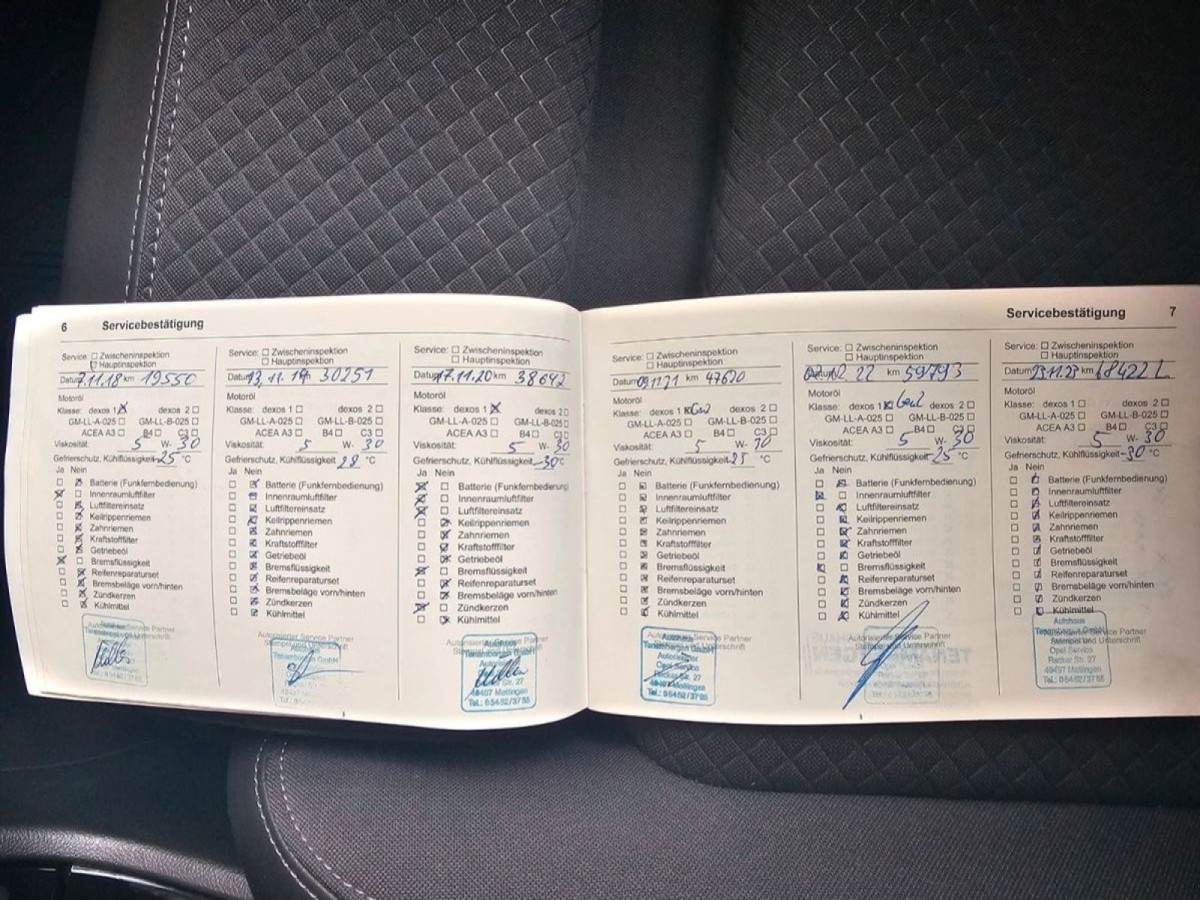 6 Servicebestätigung
Service: Zwischeninspektion
Hauptinspektion
Datum 7.11.18 km 19550
Motoröl
Klasse: dexos 1 dexos 2
GM-LL-A-025 GM-LL-B-025
ACEA A3 B4 C3
Viskosität: 5 W- 30
Gefrierschutz, Kühlflüssigkeit -25 °C
Ja Nein
Batterie (Funkfernbedienung)
Innenraumluftfilter
Luftfiltereinsatz
Keilrippenriemen
Zahnriemen
Kraftstofffilter
Getriebeöl
Bremsflüssigkeit
Reifenreparaturset
Bremsbeläge vorn/hinten
Zündkerzen
Kühlmittel
Service: Zwischeninspektion
Hauptinspektion
Datum 13.11.19 30251
Motoröl
Klasse: dexos 1 dexos 2
GM-LL-A-025 GM-LL-B-025
ACEA A3 B4 C3
Viskosität: 5 W- 30
Gefrierschutz, Kühlflüssigkeit 28 °C
Ja Nein
Batterie (Funkfernbedienung)
Innenraumluftfilter
Luftfiltereinsatz
Keilrippenriemen
Zahnriemen
Kraftstofffilter
Getriebeöl
Bremsflüssigkeit
Reifenreparaturset
Bremsbeläge vorn/hinten
Zündkerzen
Kühlmittel
Autorisierter Service Partner
49497 Mettingen
Service: Zwischeninspektion
Hauptinspektion
Datum 17.11.20 km 38642
Motoröl
Klasse: dexos 1 dexos 2
GM-LL-A-025 GM-LL-B-025
ACEA A3 B4 C3
Viskosität: 5 W- 30
Gefrierschutz, Kühlflüssigkeit -30°C
Ja Nein
Batterie (Funkfernbedienung)
Innenraumluftfilter
Luftfiltereinsatz
Keilrippenriemen
Zahnriemen
Kraftstofffilter
Getriebeöl
Bremsflüssigkeit
Reifenreparaturset
Bremsbeläge vorn/hinten
Zündkerzen
Kühlmittel
Autorisierter Service Partner
Str. 27
49497 Mettingen
Tel.: 05452/3755
Servicebestätigung 7
Service: Zwischeninspektion
Hauptinspektion
Datum 09.11.21 km 47670
Motoröl
Klasse: dexos 1 Gen2 dexos 2
GM-LL-A-025 GM-LL-B-025
ACEA A3 B4 C3
Viskosität: 5 W-
Gefrierschutz, Kühlflüssigkeit -25 °C
Ja Nein
Batterie (Funkfernbedienung)
Innenraumluftfilter
Luftfiltereinsatz
Keilrippenriemen
Zahnriemen
Kraftstofffilter
Getriebeöl
Bremsflüssigkeit
Reifenreparaturset
Bremsbeläge vorn/hinten
Zündkerzen
Kühlmittel
Autohaus
Service Partner
Opel Service
Recker Str. 27
49497 Mettingen
Tel.: 05452/3755
Service: Zwischeninspektion
Hauptinspektion
12 22 km 59793
Motoröl
Klasse: dexos 1 Gen2 dexos 2
GM-LL-A-025 GM-LL-B-025
ACEA A3 B4 C3
Viskosität: 5 W- 30
Gefrierschutz, Kühlflüssigkeit -25 °C
Ja Nein
Batterie (Funkfernbedienung)
Innenraumluftfilter
Luftfiltereinsatz
Keilrippenriemen
Zahnriemen
Kraftstofffilter
Getriebeöl
Bremsflüssigkeit
Reifenreparaturset
Bremsbeläge vorn/hinten
Zündkerzen
Kühlmittel
Autorisierter Service Partner
Service: Zwischeninspektion
Hauptinspektion
Datum 23.11.23 km 68422
Motoröl
Klasse: dexos 1 dexos 2
GM-LL-A-025 GM-LL-B-025
ACEA A3 B4 C3
Viskosität: 5 W- 30
Gefrierschutz, Kühlflüssigkeit -30 °C
Ja Nein
Batterie (Funkfernbedienung)
Innenraumluftfilter
Luftfiltereinsatz
Keilrippenriemen
Zahnriemen
Kraftstofffilter
Getriebeöl
Bremsflüssigkeit
Reifenreparaturset
Bremsbeläge vorn/hinten
Zündkerzen
Kühlmittel
Autohaus
Service Partner
Stempel und Unterschrift
Opel Service
Recker Str. 27
49497 Mettingen
Tel.: 05452/3755